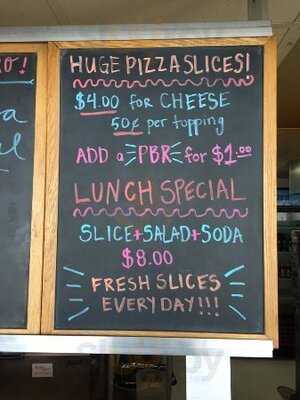 HUGE PIZZA SLICES!
$4.00 FOR CHEESE
50¢ per topping
ADD a PBR for $1.00
LUNCH SPECIAL
SLICE+SALAD+SODA
$8.00
FRESH SLICES
EVERYDAY!!!